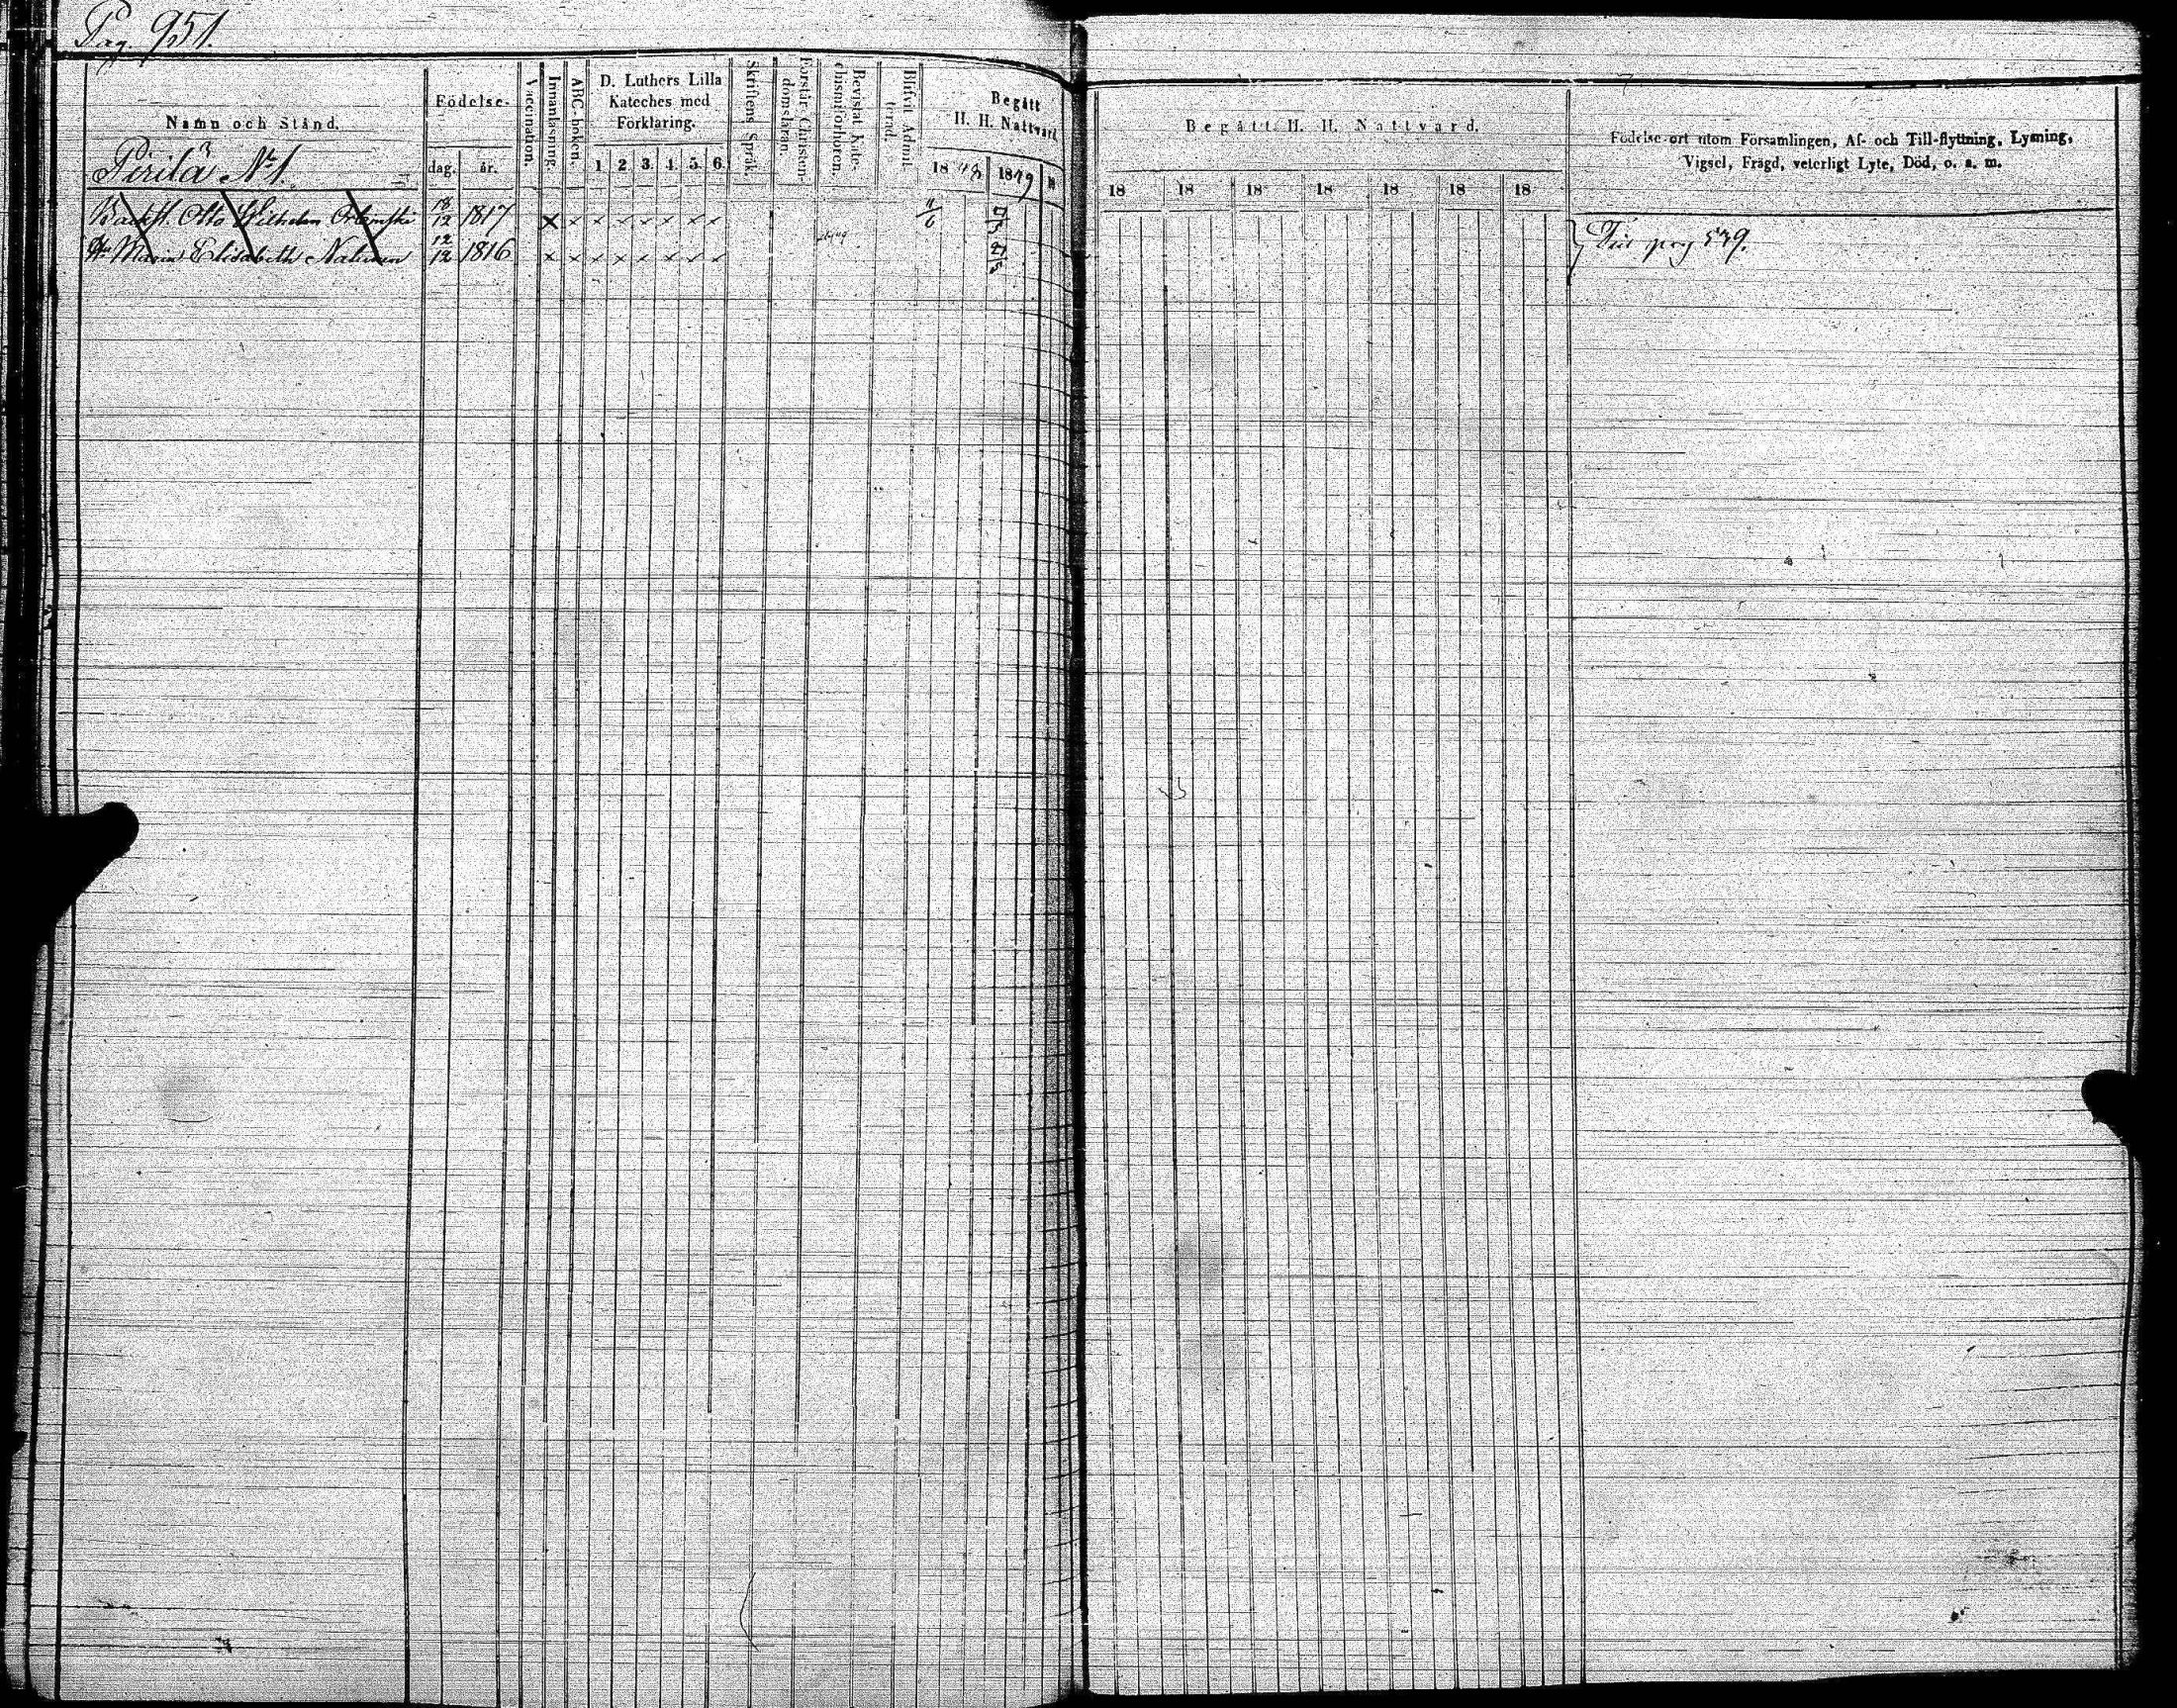 Pag. 951.
Namn och Stånd.
Födelse-
dag. år.
Vaccination.
Innanläsning.
ABC-boken.
D. Luthers Lilla
Kateches med
Förklaring.
1 2 3. 4. 5. 6.
Skriftens Språk.
Förstår Christen-
domsläran.
Bevistat Kate-
chismiförhören.
Blifvit Admit-
terad.
Begått
H. H. Nattvard
18 48 1849 18
Begått H. H. Nattvard.
18 18 18 18 18 18 18
Födelse-ort utom Församlingen, Af- och Till-flyttning, Lysning,
Vigsel, Frägd, veterligt Lyte, Död, o. s. m.
Pirilä No 1.
Otto Wilhelm 18/12 1817 x x x x x x x x 11/6
Maria Elisabeth 12/12 1816 x x x x x x x x
pag 539.